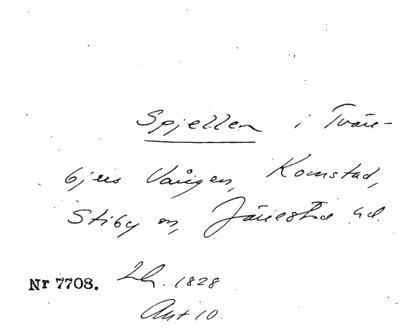 Spjellen i Tvär-
bjers Vången, Komstad,
Stiby sn, Järrestad hd.
Nr 7708. Lh. 1828
Akt 10.